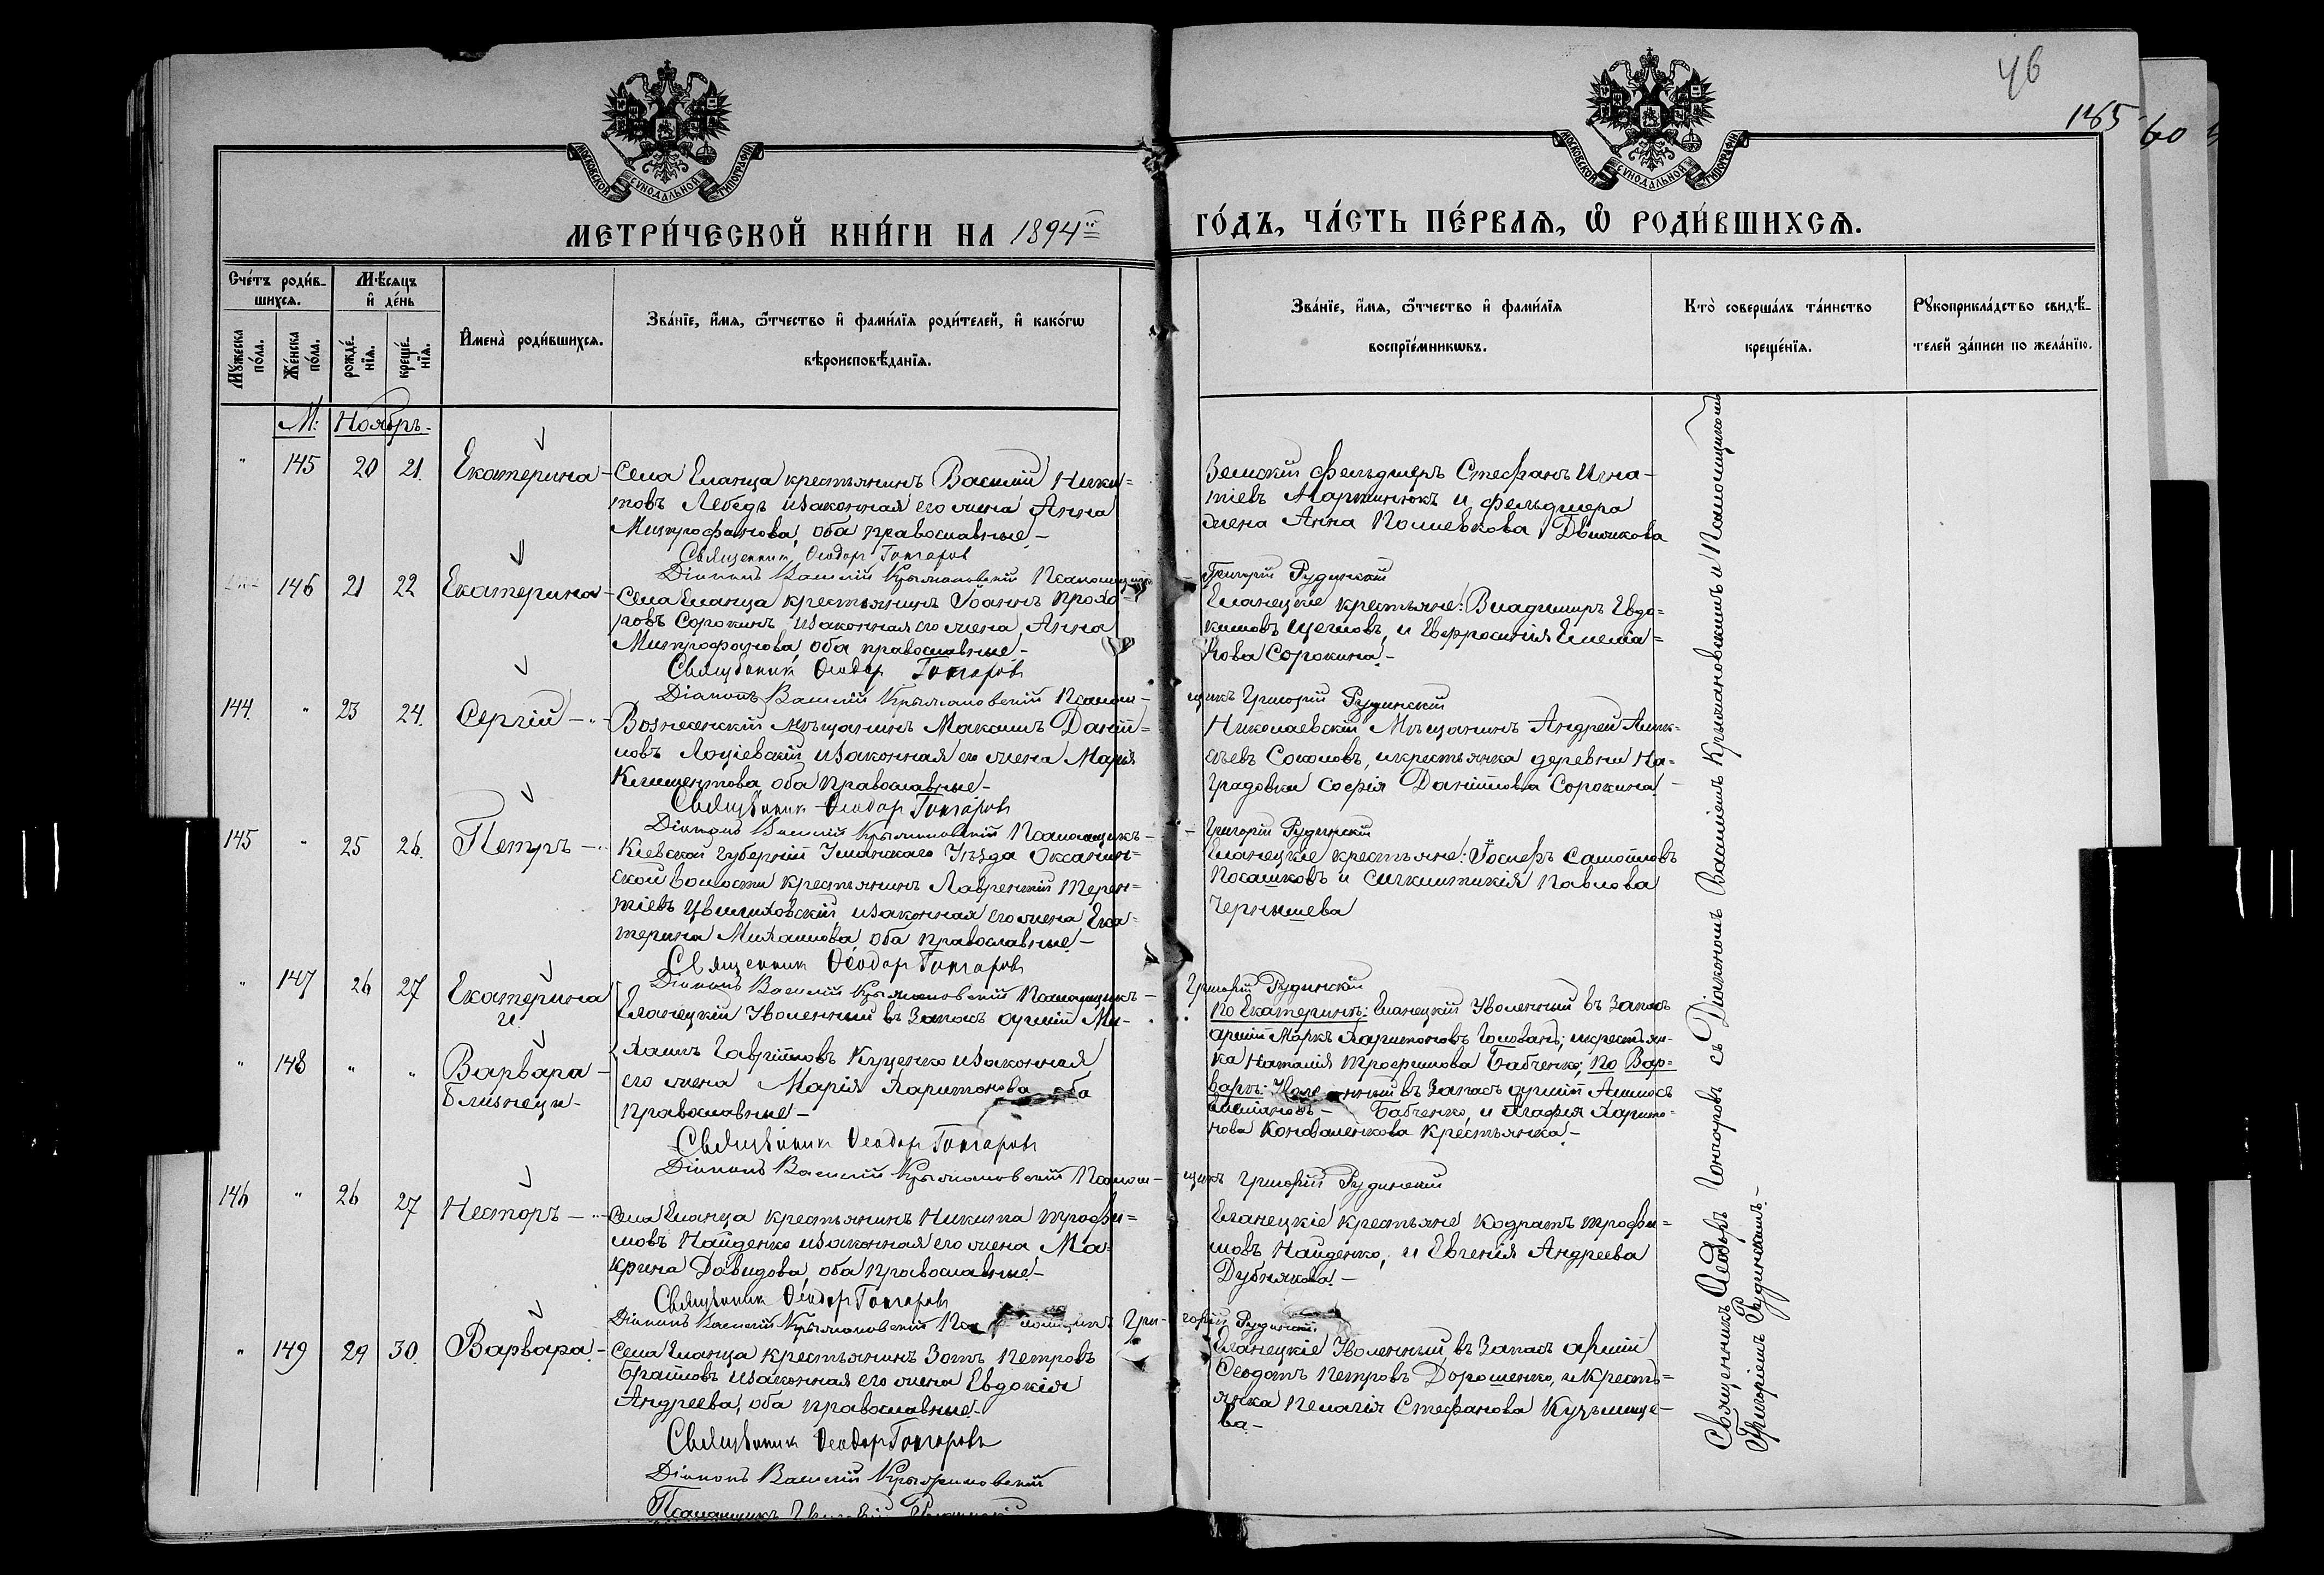 46
185
60
МОСКОВСКОЙ СѴНОДАЛЬНОЙ ТИПОГРАФІИ
МОСКОВСКОЙ СѴНОДАЛЬНОЙ ТИПОГРАФІИ
МЕТРИ́ЧЕСКОЙ КНИ́ГИ НА 1894й
ГО́ДЪ, ЧА́СТЬ ПЕ́РВАѦ, Ѡ҆ РОДИ́ВШИХСѦ.
Сче́тъ роди́в-
шихсѧ.
Мꙋжеска по́ла.
Же́нска по́ла.
Мѣ́сяцъ
и҆ де́нь
рожде́-
нїѧ.
креще́-
нїѧ.
И҆мена̀ роди́вшихсѧ.
Зва́нїе, и҆́мѧ, ѻ҆́тчество и҆ фами́лїѧ роди́телей, и҆ како́гѡ
вѣроисповѣ́данїѧ.
Зва́нїе, и҆́мѧ, ѻ҆́тчество и҆ фами́лїѧ
воспрїе́мникѡвъ.
Кто̀ соверша́лъ та́инство
креще́нїѧ.
Рꙋкоприкла́дство свидѣ́-
телей за́писи по жела́нїю.
М: Ноябрь.
" 145 20 21. Екатерина -
Села Еланца крестьянинъ Василій Ники-
товъ Лебедъ и законная его жена Анна
Митрофанова, оба православные -
Священникъ Ѳеодор Гончаров
Діаконъ Василій Крыжановскій Псаломщикъ
Земскій фельдшеръ Стефанъ Игна-
тіевъ Мартинюкъ и фельдшера
жена Анна Двилжкова
Григорій Рудинскій
146 21 22 Екатерина -
Села Еланца крестьянинъ Іоаннъ Прохо-
ровъ Сорокинъ и законная его жена Анна
Митрофанова оба православные -
Священникъ Ѳеодор Гончаровъ
Діаконъ Василій Крыжановскій Псалом-
Еланецкіе крестьяне: Владиміръ Евдо-
кимовъ Щегловъ, и Евфросинія Емелiа-
нова Сорокина -
щикъ Григорій Рудинскій
144. " 23 24. Сергій - " -
Вознесенскій мѣщанинъ Максимъ Даній-
ловъ Лоціевскій и законная его жена Марія
Климентова оба православные -
Священникъ Ѳеодор Гончаровъ
Діаконъ Василій Крыжановскій Псаломщикъ -
Николаевскій Мѣщанинъ Андрей Алек-
сѣевъ Соколовъ, и крестьянка деревни На-
градовки Софія Даніилова Сорокина -
- Григорій Рудинскій
145 " 25 26. Петръ - "
Кіевской губерніи Уманскаго Уѣзда Оксанин-
ской волости крестьянинъ Лаврентій Терен-
тіевъ и законная его жена Ека-
терина Михаилова, оба православные -
Священникъ Ѳеодор Гончаровъ
Діаконъ Василій Крыжановскій Псаломщикъ -
Еланецкіе крестьяне: Іосифъ Самойловъ
Посашковъ и Синклитикія Павлова
Чернышева
Григорій Рудинскій
" 147 26 27 Екатерина
и
" 148 " " Варвара -
Близнецы -
Еланецкій Уволенный въ Запасъ арміи Ми-
хаилъ Гавріиловъ Куценко и законная
его жена Марія Харитонова оба
православные -
Священникъ Ѳеодор Гончаровъ
Діаконъ Василій Крыжановскій Псалом-
По Екатеринѣ: Еланецкій Уволенный въ Запасъ
арміи Маркъ Харитоновъ Голованъ; и крестьян-
ка Наталія Трофимова Бабченко; По Вар-
варѣ: въ Запасъ арміи
Бабченко, и Агафія Харито-
нова Коноваленкова крестьянка -
щикъ Григорій Рудинскій
146 " 26 27 Несторъ - " -
Села Еланца крестьянинъ Никита Трофи-
мовъ Найденко и законная его жена Ма-
крина Давидова, оба православные -
Священникъ Ѳеодор Гончаровъ
Діаконъ Василій Крыжановскій Псаломщикъ Гри-
Еланецкіе крестьяне Кодратъ Трофи-
мовъ Найденко, и Евгенія Андреева
Дубнякова -
горій Рудинскій
" 149 29 30. Варвара -
Села Еланца крестьянинъ Зотъ Петровъ
Браиловъ и законная его жена Евдокія
Андреева, оба православные -
Священникъ Ѳеодор Гончаровъ
Діаконъ Василій Крыжановскій
Псаломщикъ Григорій Рудинскій
Еланецкіе Уволенный въ Запасъ арміи
Ѳеодотъ Петровъ Дорошенко, и кресть-
янка Пелагія Стефанова Кузьмище-
ва -
Священникъ Ѳеодоръ Гончаровъ съ Діакономъ Василіемъ Крыжановскимъ и Псаломщикомъ
Григоріемъ Рудинскимъ -